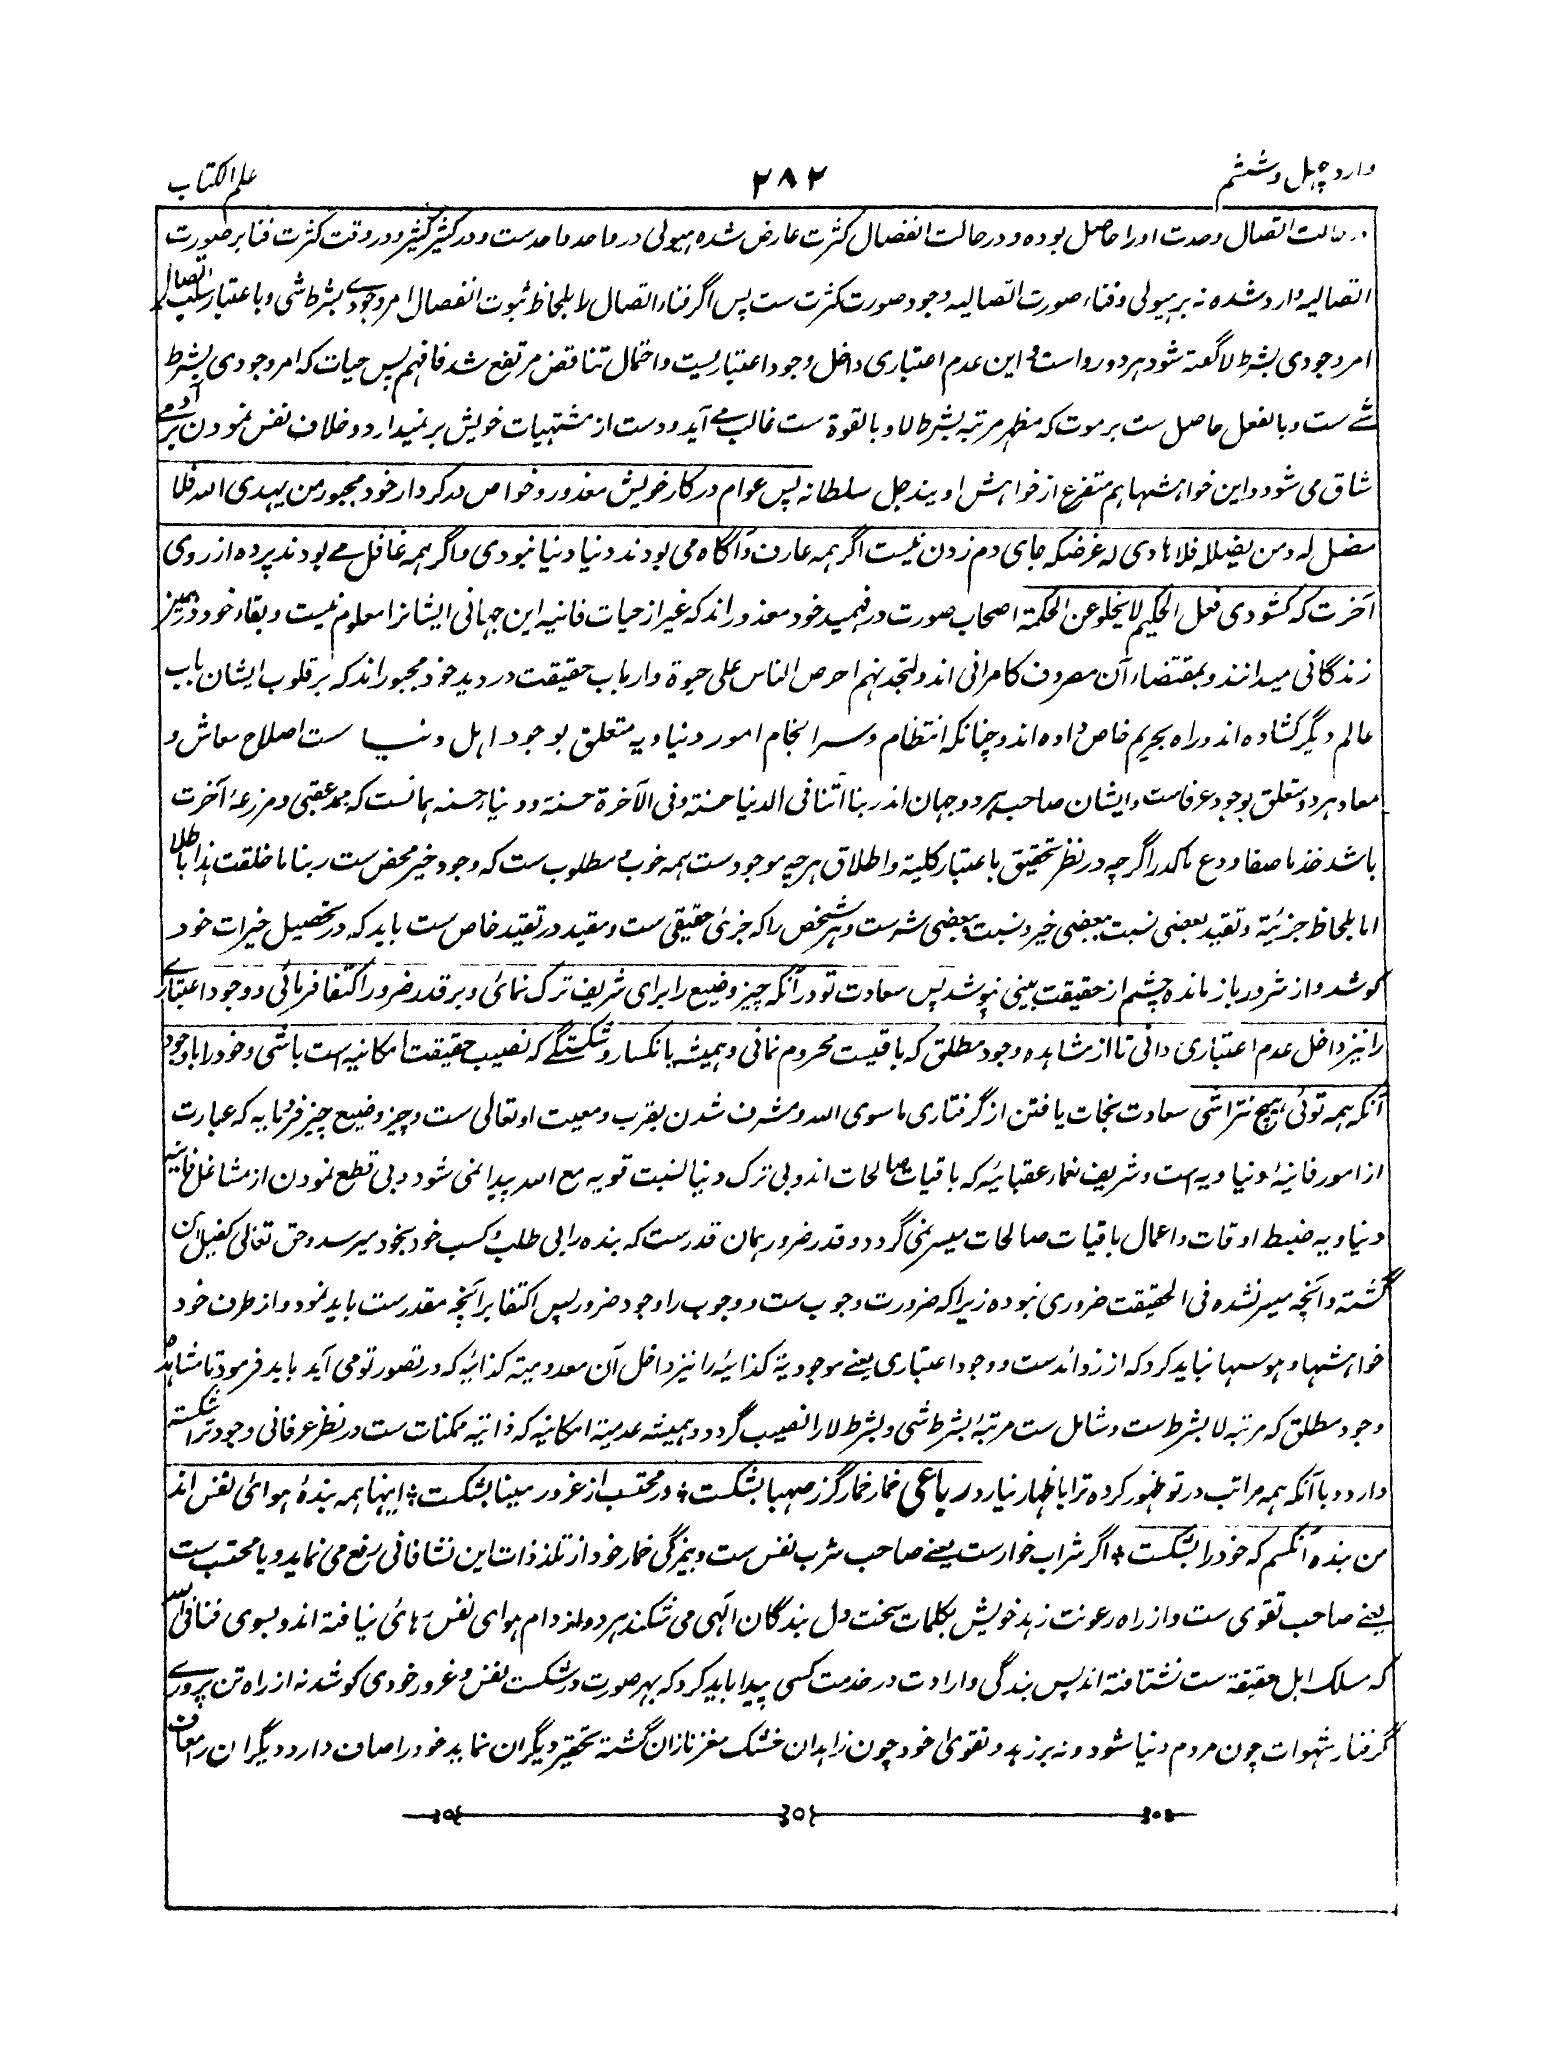 وارد چهل و ششم
۲۸۲
علم الکتاب
حالت اتصال وحدت او را حاصل بوده و در حالت انفصال کثرت عارض شده هیولی در واحد واحدست و در کثیر کثیر و در وقت کثرت فنا بر صورت
اتصالیه وارد شده نه بر هیولی و فناء صورت اتصالیه وجود صورت کثرت ست پس اگر فناء اتصال را بلحاظ ثبوت انفصال امر وجودے بشرط شی و باعتبار سلب اتصال
امر وجودی بشرط لا گفته شود هر دو رواست و این عدم اعتباری داخل وجود اعتباریست و احتمال تناقض مرتفع شد فافهم پس حیات که امر وجودی بشرط
شے ست و بالفعل حاصل ست بر موت که مظهر مرتبه بشرط لا و بالقوة ست غالب مے آید و دست از مشتهیات خویش برنمیدارد و خلاف نفس نمودن بر آدمے
شاق می شود و این خواهشها هم متفرع از خواهش اویند جل سلطانه پس عوام در کار خویش معذور و خواص در کردار خود مجبور من یهدی الله فلا
مضل له و من یضلله فلا هادی له غرضکه جای دم زدن نیست اگر همه عارف و آگاه می بودند دنیا دنیا نبودی و اگر همه غافل مے بودند پرده از روی
آخرت که کشودی فعل الحکیم لا یخلو عن الحکمة اصحاب صورت در فهمید خود معذور اند که غیر از حیات فانیه این جهانی ایشانرا معلوم نیست و بقاء خود در همین
زندگانی میدانند و بمقتضاء آن مصروف کامرانی اند و لتجدنهم احرص الناس علی حیوة و ارباب حقیقت در دید خود مجبور اند که بر قلوب ایشان باب
عالم دیگر کشاده اند و راه بحریم خاص داده اند و چنانکه انتظام و سرانجام امور دنیاویه متعلق بوجود اهل دنیا ست اصلاح معاش و
معاد هر دو متعلق بوجود عرفاست و ایشان صاحب هر دو جهان اند ربنا آتنا فی الدنیا حسنة و فی الآخرة حسنة و دنیاء حسنه همانست که ممد عقبی و مزرعۀ آخرت
باشد خذ ما صفا و دع ما کدر اگرچه در نظر تحقیق باعتبار کلیة و اطلاق هر چه موجودست همه خوب و مطلوب ست که وجود خیر محض ست ربنا ما خلقت هذا باطلا
اما بلحاظ جزئیة و تقید بعضی نسبت ببعضی خیر و نسبت ببعضی شر ست و هر شخص را که جزئی حقیقی ست و مقید در تقید خاص ست باید که در تحصیل خیرات خود
کوشد و از شرور باز مانده چشم از حقیقت بینی نپوشد پس سعادت تو در آنکه چیز وضیع را برای شریف ترک نمائ و بر قدر ضرور اکتفا فرمائی و وجود اعتبارے
را نیز داخل عدم اعتباری دانی تا از مشاهده وجود مطلق که باقیست محروم نمانی و همیشه بانکسار و شکستگے که نصیب حقیقت امکانیه است باشی و خود را باوجود
آنکه همه توئی هیچ نتراشی سعادت نجات یافتن از گرفتاری ما سوی الله و مشرف شدن بقرب و معیت او تعالی ست و چیز وضیع چیز فرومایه که عبارت
از امور فانیۀ دنیاویه است و شریف نعماء عقبائیه که باقیات صالحات اند و بی ترک دنیا نسبت قویه مع الله پیدا نمی شود و بی قطع نمودن از مشاغل فانیه
دنیاویه ضبط اوقات و اعمال باقیات صالحات میسر نمی گردد و قدر ضرور همان قدرست که بنده را بی طلب و کسب خود بخود میرسد و حق تعالی کفیل آن
گشته و آنچه میسر نشده فی الحقیقت ضروری نبوده زیرا که ضرورت وجوب ست و وجوب را وجود ضرور پس اکتفا بر آنچه مقدرست باید نمود و از طرف خود
خواهشها و هوسها نباید کرد که از زوائدست و وجود اعتباری یعنے موجودیة کذائیه را نیز داخل آن معدومیة کذائیه که در تصور تو می آید باید فرمود تا مشاهده
وجود مطلق که مرتبه لا بشرط ست و شامل ست مرتبۀ بشرط شی و بشرط لا را نصیب گردد و همیشه عدمیة امکانیه که ذاتیه ممکنات ست در نظر عرفانی وجود ترا شکسته
دارد و باآنکه همه مراتب در تو ظهور کرده ترا باظهار نیارد رباعی خمار خمار گر ز صهبا بشکست ٭ ور محتسب از غرور مینا بشکست ٭ اینها همه بندۀ هوائ نفس اند
من بنده آنکسم که خود را بشکست ٭ اگر شراب خوارست یعنے صاحب مشرب نفس ست و بیمزگی خمار خود از تلذذات این نشا فانی رفع می نماید و یا محتسب ست
یعنے صاحب تقوی ست و از راه رعونت زهد خویش بکلمات سخت دل بندگان الهی می شکند هر دو از دام هوای نفس رهائ نیافته اند و بسوی فنا فی الله
که مسلک اهل حقیقة ست نشتافته اند پس بندگی و ارادت در خدمت کسی پیدا باید کرد که بهر صورت در شکست نفس و غرور خودی کوشد نه از راه تن پرورے
گرفتار شهوات چون مردم دنیا شود و نه بر زهد و تقویٰ خود چون زاهدان خشک مغز نازان گشته تحقیر دیگران نماید خود را صاف دارد و دیگران را معاف